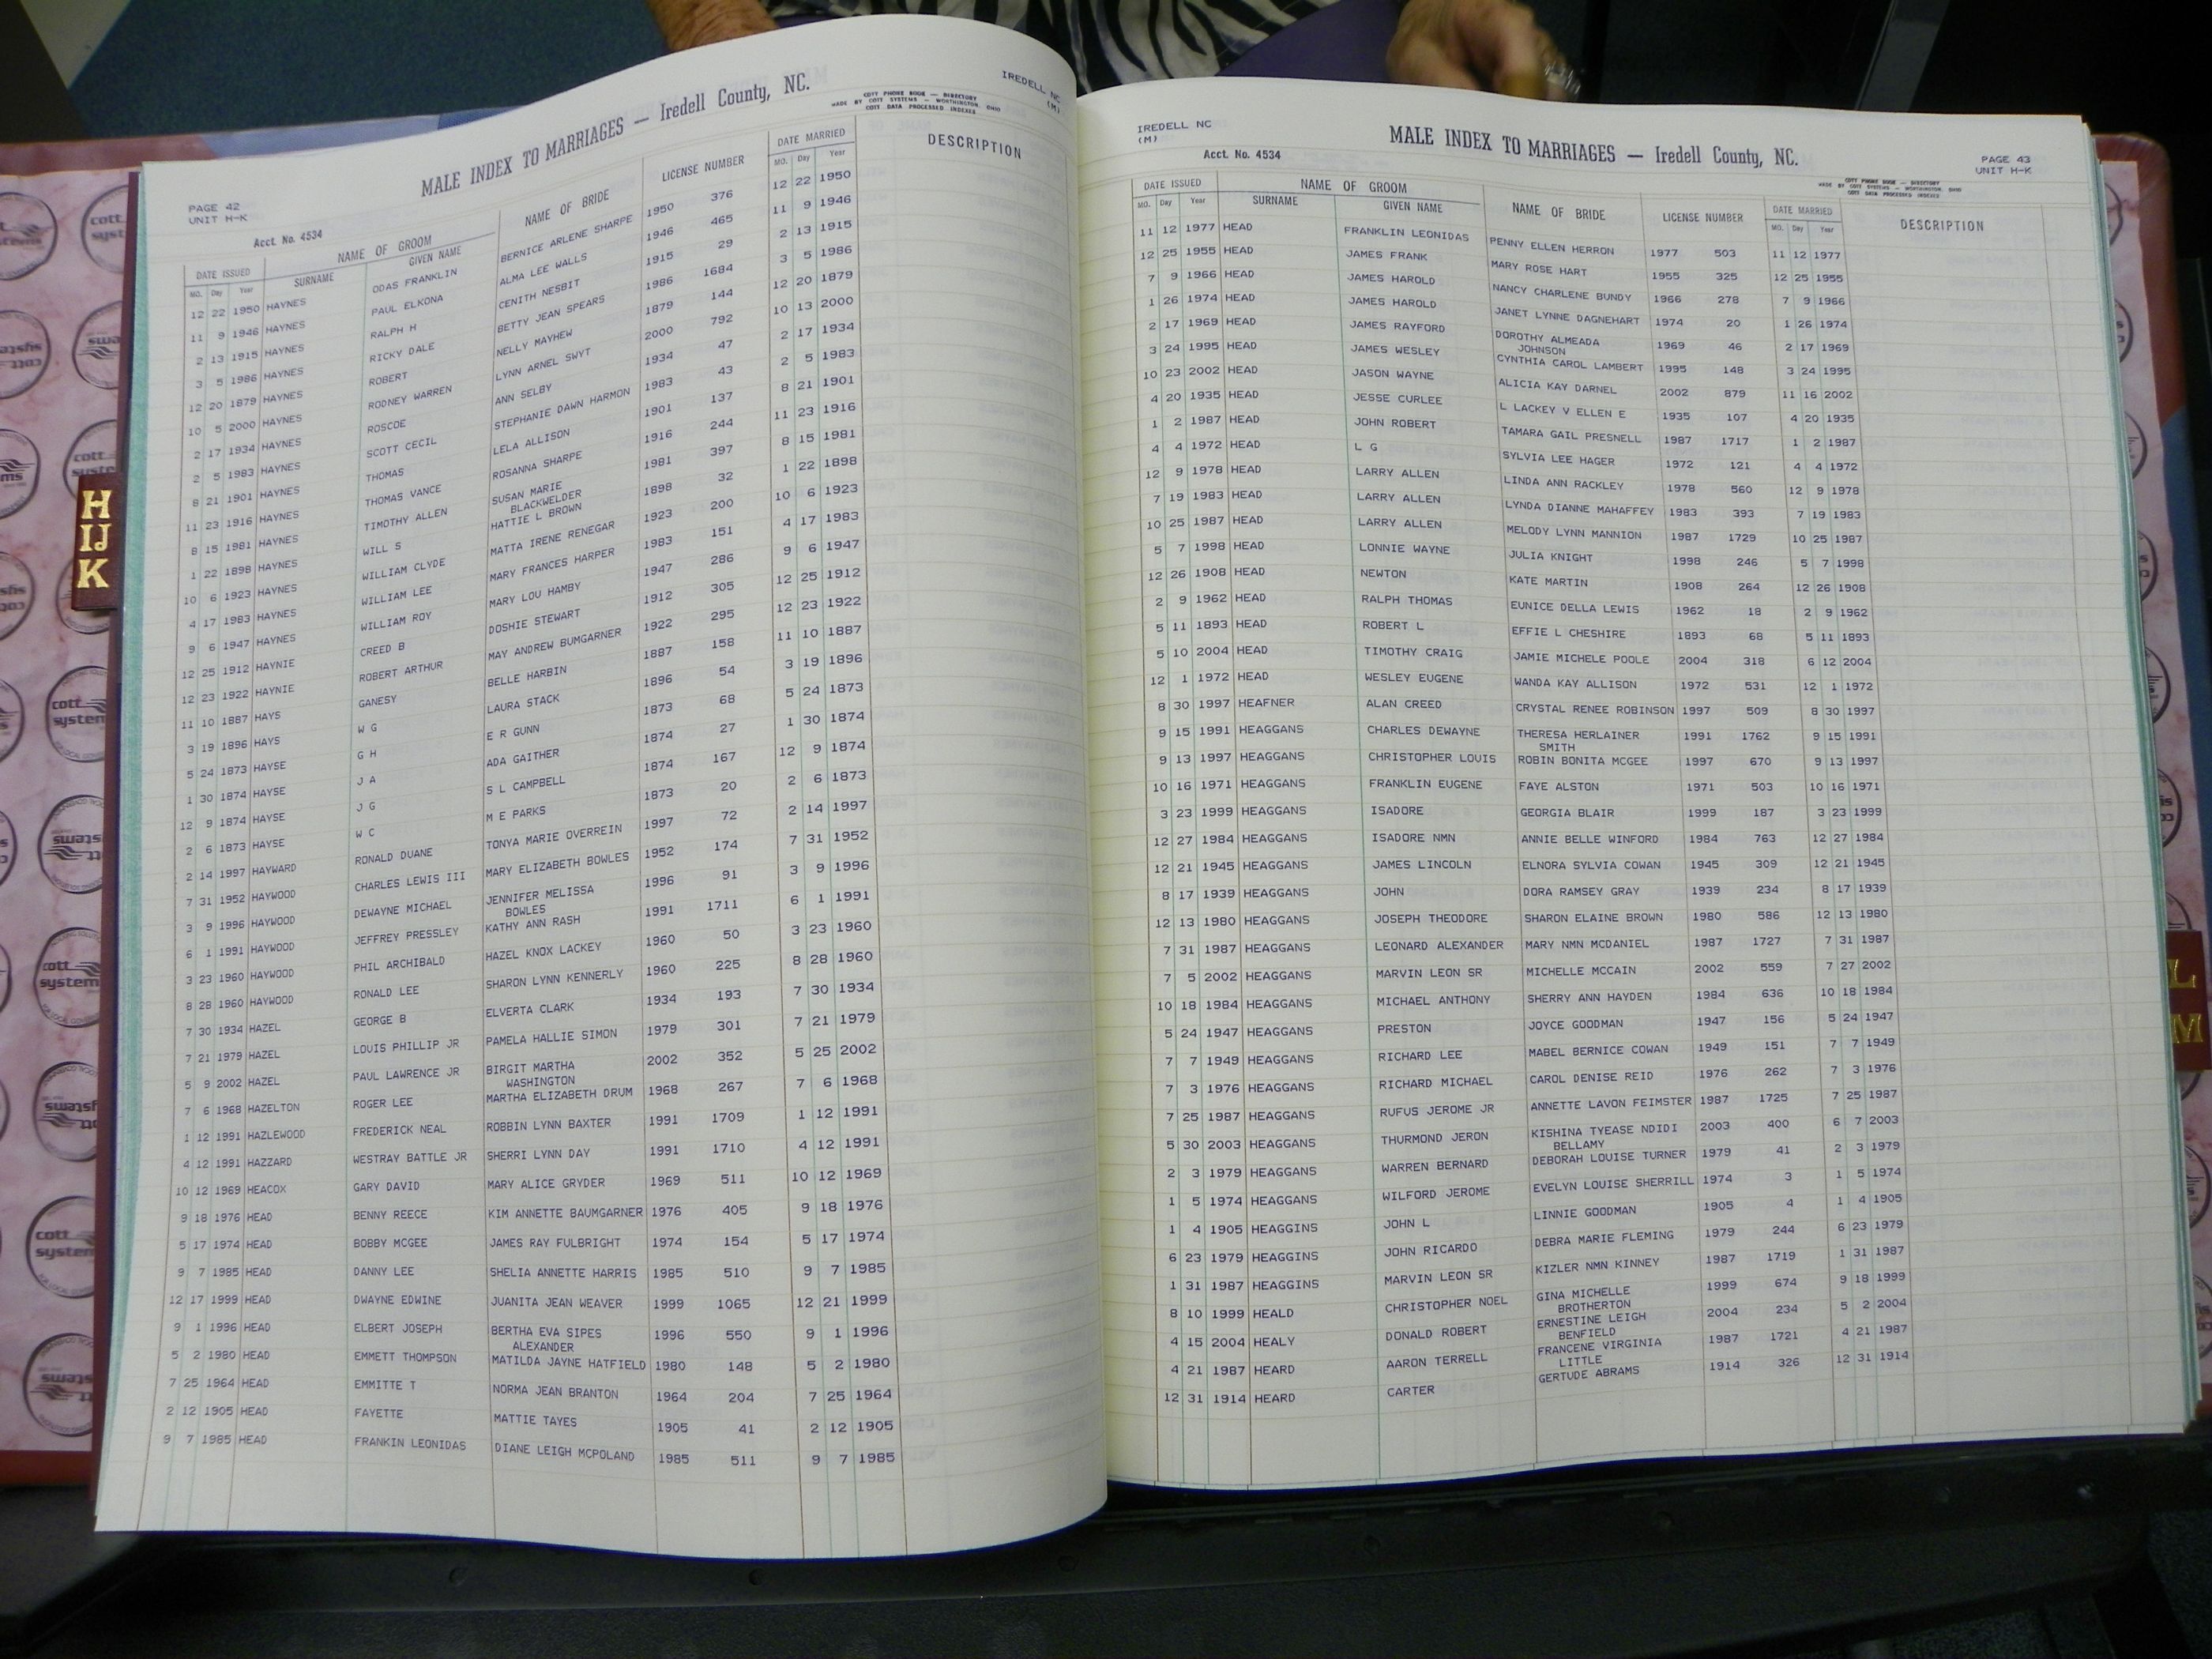 MALE INDEX TO MARRIAGES — Iredell County, NC.
IREDELL NC
(M)
COTT PHONE BOOK — DIRECTORY
MADE BY COTT SYSTEMS — WORTHINGTON, OHIO
COTT DATA PROCESSED INDEXER
PAGE 42
UNIT H-K
Acct. No. 4534
DATE ISSUED NAME OF GROOM NAME OF BRIDE LICENSE NUMBER DATE MARRIED DESCRIPTION
MO. Day Year SURNAME GIVEN NAME MO. Day Year
12 22 1950 HAYNES ODAS FRANKLIN BERNICE ARLENE SHARPE 1950 376 12 22 1950
11 9 1946 HAYNES PAUL ELKONA ALMA LEE WALLS 1946 465 11 9 1946
2 13 1915 HAYNES RALPH H CENITH NESBIT 1915 29 2 13 1915
3 5 1986 HAYNES RICKY DALE BETTY JEAN SPEARS 1986 1684 3 5 1986
12 20 1879 HAYNES ROBERT NELLY MAYHEW 1879 144 12 20 1879
10 5 2000 HAYNES RODNEY WARREN LYNN ARNEL SWYT 2000 792 10 13 2000
2 17 1934 HAYNES ROSCOE ANN SELBY 1934 47 2 17 1934
2 5 1983 HAYNES SCOTT CECIL STEPHANIE DAWN HARMON 1983 43 2 5 1983
8 21 1901 HAYNES THOMAS LELA ALLISON 1901 137 8 21 1901
11 23 1916 HAYNES THOMAS VANCE ROSANNA SHARPE 1916 244 11 23 1916
8 15 1981 HAYNES TIMOTHY ALLEN SUSAN MARIE 1981 397 8 15 1981
BLACKWELDER
1 22 1898 HAYNES WILL S HATTIE L BROWN 1898 32 1 22 1898
10 6 1923 HAYNES WILLIAM CLYDE MATTA IRENE RENEGAR 1923 200 10 6 1923
4 17 1983 HAYNES WILLIAM LEE MARY FRANCES HARPER 1983 151 4 17 1983
9 6 1947 HAYNES WILLIAM ROY MARY LOU HAMBY 1947 286 9 6 1947
12 25 1912 HAYNIE CREED B DOSHIE STEWART 1912 305 12 25 1912
12 23 1922 HAYNIE ROBERT ARTHUR MAY ANDREW BUMGARNER 1922 295 12 23 1922
11 10 1887 HAYS GANESY BELLE HARBIN 1887 158 11 10 1887
3 19 1896 HAYS W G LAURA STACK 1896 54 3 19 1896
5 24 1873 HAYSE G H E R GUNN 1873 68 5 24 1873
1 30 1874 HAYSE J A ADA GAITHER 1874 27 1 30 1874
12 9 1874 HAYSE J G S L CAMPBELL 1874 167 12 9 1874
2 6 1873 HAYSE W C M E PARKS 1873 20 2 6 1873
2 14 1997 HAYWARD RONALD DUANE TONYA MARIE OVERREIN 1997 72 2 14 1997
7 31 1952 HAYWOOD CHARLES LEWIS III MARY ELIZABETH BOWLES 1952 174 7 31 1952
3 9 1996 HAYWOOD DEWAYNE MICHAEL JENNIFER MELISSA 1996 91 3 9 1996
BOWLES
6 1 1991 HAYWOOD JEFFREY PRESSLEY KATHY ANN RASH 1991 1711 6 1 1991
3 23 1960 HAYWOOD PHIL ARCHIBALD HAZEL KNOX LACKEY 1960 50 3 23 1960
8 28 1960 HAYWOOD RONALD LEE SHARON LYNN KENNERLY 1960 225 8 28 1960
7 30 1934 HAZEL GEORGE B ELVERTA CLARK 1934 193 7 30 1934
7 21 1979 HAZEL LOUIS PHILLIP JR PAMELA HALLIE SIMON 1979 301 7 21 1979
5 9 2002 HAZEL PAUL LAWRENCE JR BIRGIT MARTHA 2002 352 5 25 2002
WASHINGTON
7 6 1968 HAZELTON ROGER LEE MARTHA ELIZABETH DRUM 1968 267 7 6 1968
1 12 1991 HAZLEWOOD FREDERICK NEAL ROBBIN LYNN BAXTER 1991 1709 1 12 1991
4 12 1991 HAZZARD WESTRAY BATTLE JR SHERRI LYNN DAY 1991 1710 4 12 1991
10 12 1969 HEACOX GARY DAVID MARY ALICE GRYDER 1969 511 10 12 1969
9 18 1976 HEAD BENNY REECE KIM ANNETTE BAUMGARNER 1976 405 9 18 1976
5 17 1974 HEAD BOBBY MCGEE JAMES RAY FULBRIGHT 1974 154 5 17 1974
9 7 1985 HEAD DANNY LEE SHELIA ANNETTE HARRIS 1985 510 9 7 1985
12 17 1999 HEAD DWAYNE EDWINE JUANITA JEAN WEAVER 1999 1065 12 21 1999
9 1 1996 HEAD ELBERT JOSEPH BERTHA EVA SIPES 1996 550 9 1 1996
ALEXANDER
5 2 1980 HEAD EMMETT THOMPSON MATILDA JAYNE HATFIELD 1980 148 5 2 1980
7 25 1964 HEAD EMMITTE T NORMA JEAN BRANTON 1964 204 7 25 1964
2 12 1905 HEAD FAYETTE MATTIE TAYES 1905 41 2 12 1905
9 7 1985 HEAD FRANKIN LEONIDAS DIANE LEIGH MCPOLAND 1985 511 9 7 1985
IREDELL NC
(M)
Acct. No. 4534
MALE INDEX TO MARRIAGES — Iredell County, NC.
PAGE 43
UNIT H-K
COTT PHONE BOOK — DIRECTORY
MADE BY COTT SYSTEMS — WORTHINGTON, OHIO
COTT DATA PROCESSED INDEXER
DATE ISSUED NAME OF GROOM NAME OF BRIDE LICENSE NUMBER DATE MARRIED DESCRIPTION
MO. Day Year SURNAME GIVEN NAME MO. Day Year
11 12 1977 HEAD FRANKLIN LEONIDAS PENNY ELLEN HERRON 1977 503 11 12 1977
12 25 1955 HEAD JAMES FRANK MARY ROSE HART 1955 325 12 25 1955
7 9 1966 HEAD JAMES HAROLD NANCY CHARLENE BUNDY 1966 278 7 9 1966
1 26 1974 HEAD JAMES HAROLD JANET LYNNE DAGNEHART 1974 20 1 26 1974
2 17 1969 HEAD JAMES RAYFORD DOROTHY ALMEADA 1969 46 2 17 1969
JOHNSON
3 24 1995 HEAD JAMES WESLEY CYNTHIA CAROL LAMBERT 1995 148 3 24 1995
10 23 2002 HEAD JASON WAYNE ALICIA KAY DARNEL 2002 879 11 16 2002
4 20 1935 HEAD JESSE CURLEE L LACKEY V ELLEN E 1935 107 4 20 1935
1 2 1987 HEAD JOHN ROBERT TAMARA GAIL PRESNELL 1987 1717 1 2 1987
4 4 1972 HEAD L G SYLVIA LEE HAGER 1972 121 4 4 1972
12 9 1978 HEAD LARRY ALLEN LINDA ANN RACKLEY 1978 560 12 9 1978
7 19 1983 HEAD LARRY ALLEN LYNDA DIANNE MAHAFFEY 1983 393 7 19 1983
10 25 1987 HEAD LARRY ALLEN MELODY LYNN MANNION 1987 1729 10 25 1987
5 7 1998 HEAD LONNIE WAYNE JULIA KNIGHT 1998 246 5 7 1998
12 26 1908 HEAD NEWTON KATE MARTIN 1908 264 12 26 1908
2 9 1962 HEAD RALPH THOMAS EUNICE DELLA LEWIS 1962 18 2 9 1962
5 11 1893 HEAD ROBERT L EFFIE L CHESHIRE 1893 68 5 11 1893
5 10 2004 HEAD TIMOTHY CRAIG JAMIE MICHELE POOLE 2004 318 6 12 2004
12 1 1972 HEAD WESLEY EUGENE WANDA KAY ALLISON 1972 531 12 1 1972
8 30 1997 HEAFNER ALAN CREED CRYSTAL RENEE ROBINSON 1997 509 8 30 1997
9 15 1991 HEAGGANS CHARLES DEWAYNE THERESA HERLAINER 1991 1762 9 15 1991
SMITH
9 13 1997 HEAGGANS CHRISTOPHER LOUIS ROBIN BONITA MCGEE 1997 670 9 13 1997
10 16 1971 HEAGGANS FRANKLIN EUGENE FAYE ALSTON 1971 503 10 16 1971
3 23 1999 HEAGGANS ISADORE GEORGIA BLAIR 1999 187 3 23 1999
12 27 1984 HEAGGANS ISADORE NMN ANNIE BELLE WINFORD 1984 763 12 27 1984
12 21 1945 HEAGGANS JAMES LINCOLN ELNORA SYLVIA COWAN 1945 309 12 21 1945
8 17 1939 HEAGGANS JOHN DORA RAMSEY GRAY 1939 234 8 17 1939
12 13 1980 HEAGGANS JOSEPH THEODORE SHARON ELAINE BROWN 1980 586 12 13 1980
7 31 1987 HEAGGANS LEONARD ALEXANDER MARY NMN MCDANIEL 1987 1727 7 31 1987
7 5 2002 HEAGGANS MARVIN LEON SR MICHELLE MCCAIN 2002 559 7 27 2002
10 18 1984 HEAGGANS MICHAEL ANTHONY SHERRY ANN HAYDEN 1984 636 10 18 1984
5 24 1947 HEAGGANS PRESTON JOYCE GOODMAN 1947 156 5 24 1947
7 7 1949 HEAGGANS RICHARD LEE MABEL BERNICE COWAN 1949 151 7 7 1949
7 3 1976 HEAGGANS RICHARD MICHAEL CAROL DENISE REID 1976 262 7 3 1976
7 25 1987 HEAGGANS RUFUS JEROME JR ANNETTE LAVON FEIMSTER 1987 1725 7 25 1987
5 30 2003 HEAGGANS THURMOND JERON KISHINA TYEASE NDIDI 2003 400 6 7 2003
BELLAMY
2 3 1979 HEAGGANS WARREN BERNARD DEBORAH LOUISE TURNER 1979 41 2 3 1979
1 5 1974 HEAGGANS WILFORD JEROME EVELYN LOUISE SHERRILL 1974 3 1 5 1974
1 4 1905 HEAGGINS JOHN L LINNIE GOODMAN 1905 4 1 4 1905
6 23 1979 HEAGGINS JOHN RICARDO DEBRA MARIE FLEMING 1979 244 6 23 1979
1 31 1987 HEAGGINS MARVIN LEON SR KIZLER NMN KINNEY 1987 1719 1 31 1987
8 10 1999 HEALD CHRISTOPHER NOEL GINA MICHELLE 1999 674 9 18 1999
BROTHERTON
4 15 2004 HEALY DONALD ROBERT ERNESTINE LEIGH 2004 234 5 2 2004
BENFIELD
4 21 1987 HEARD AARON TERRELL FRANCENE VIRGINIA 1987 1721 4 21 1987
LITTLE
12 31 1914 HEARD CARTER GERTUDE ABRAMS 1914 326 12 31 1914
H
IJ
K
L
M
cott
systems